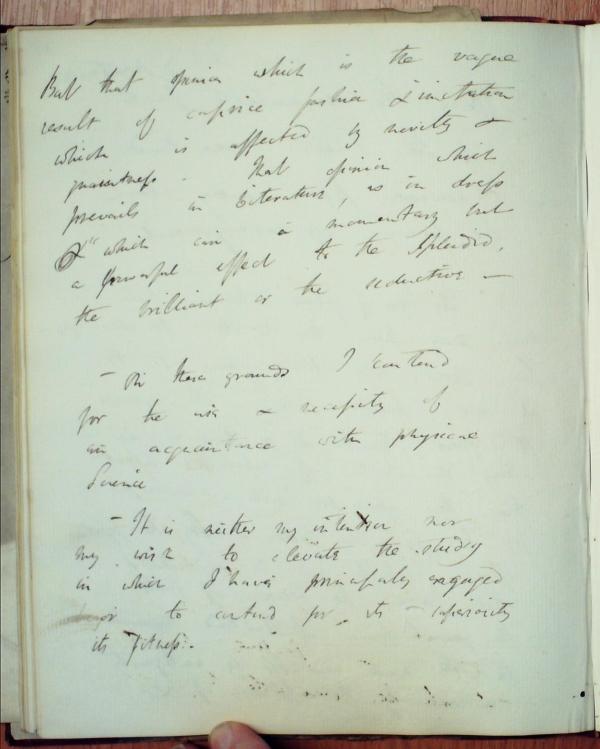 But that opinion which is the vague
result of caprice fashion & imitation
which is affected by novelty &
quaintness. That opinion which
prevails in Literature, as in dress
& which can in a momentary but
a powerful effect to the splendid,
the brilliant or the seductive —
— On these grounds I contend
for the use & necessity of
an acquaintance with physical
Science
— It is neither my intention nor
my wish to elevate the study
in which I have principally engaged
nor to contend for its superiority
its fitness.